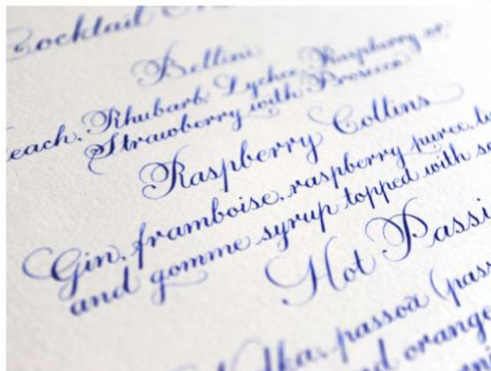 Cocktail
Bellini
each, Rhubarb, Lychee, Raspberry or
Strawberry with Prosecco
Raspberry Collins
Gin, framboise, raspberry puree, le
and gomme syrup topped with so
Hot Passi
dka, passoã (pass
d orange